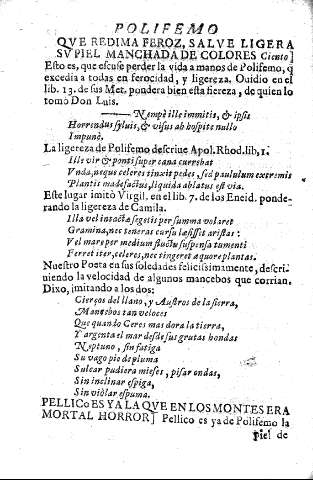 POLIFEMO
QVE REDIMA FEROZ, SALVE LIGERA
SV PIEL MANCHADA DE COLORES Ciento]
Esto es, que escuse perder la vida a manos de Polifemo, q̃
excedia a todas en ferocidad, y ligereza. Ouidio en el
lib. 13. de sus Met. pondera bien esta fiereza, de quien lo
tomò Don Luis.
Nempè ille immitis, & ipsis
Horrendus syluis, & visus ab hospite nullo
Impunè.
La ligereza de Polifemo descriue Apol. Rhod. lib, 1.
Ille vir & ponti super cana currebat
Vnda, neque celeres tinxit pedes, sed paululum extremis
Plantis madefactus, liquida ablatus est via.
Este lugar imitò Virgil. en el lib. 7. de los Eneid. ponde-
rando la ligereza de Camila.
Illa vel intactæ segetis per summa volaret
Gramina, nec teneras cursu læsisset aristas:
Vel mare per medium fluctu suspensa tumenti
Ferret iter, celeres, nec tingeret æquore plantas.
Nuestro Poeta en sus soledades felicissimamente, descri-
uiendo la velocidad de algunos mancebos que corrian,
Dixo, imitando a los dos:
Cierços del llano, y Austros de la sierra,
Mancebos tan veloces
Que quando Ceres mas dora la tierra,
Y argenta el mar desde sus grutas hondas
Neptuno, sin fatiga
Su vago pie de pluma
Sulcar pudiera mieses, pisar ondas,
Sin inclinar espiga,
Sin violar espuma.
PELLICO ES YA LA QVE EN LOS MONTES ERA
MORTAL HORROR] Pellico es ya de Polifemo la
piel de